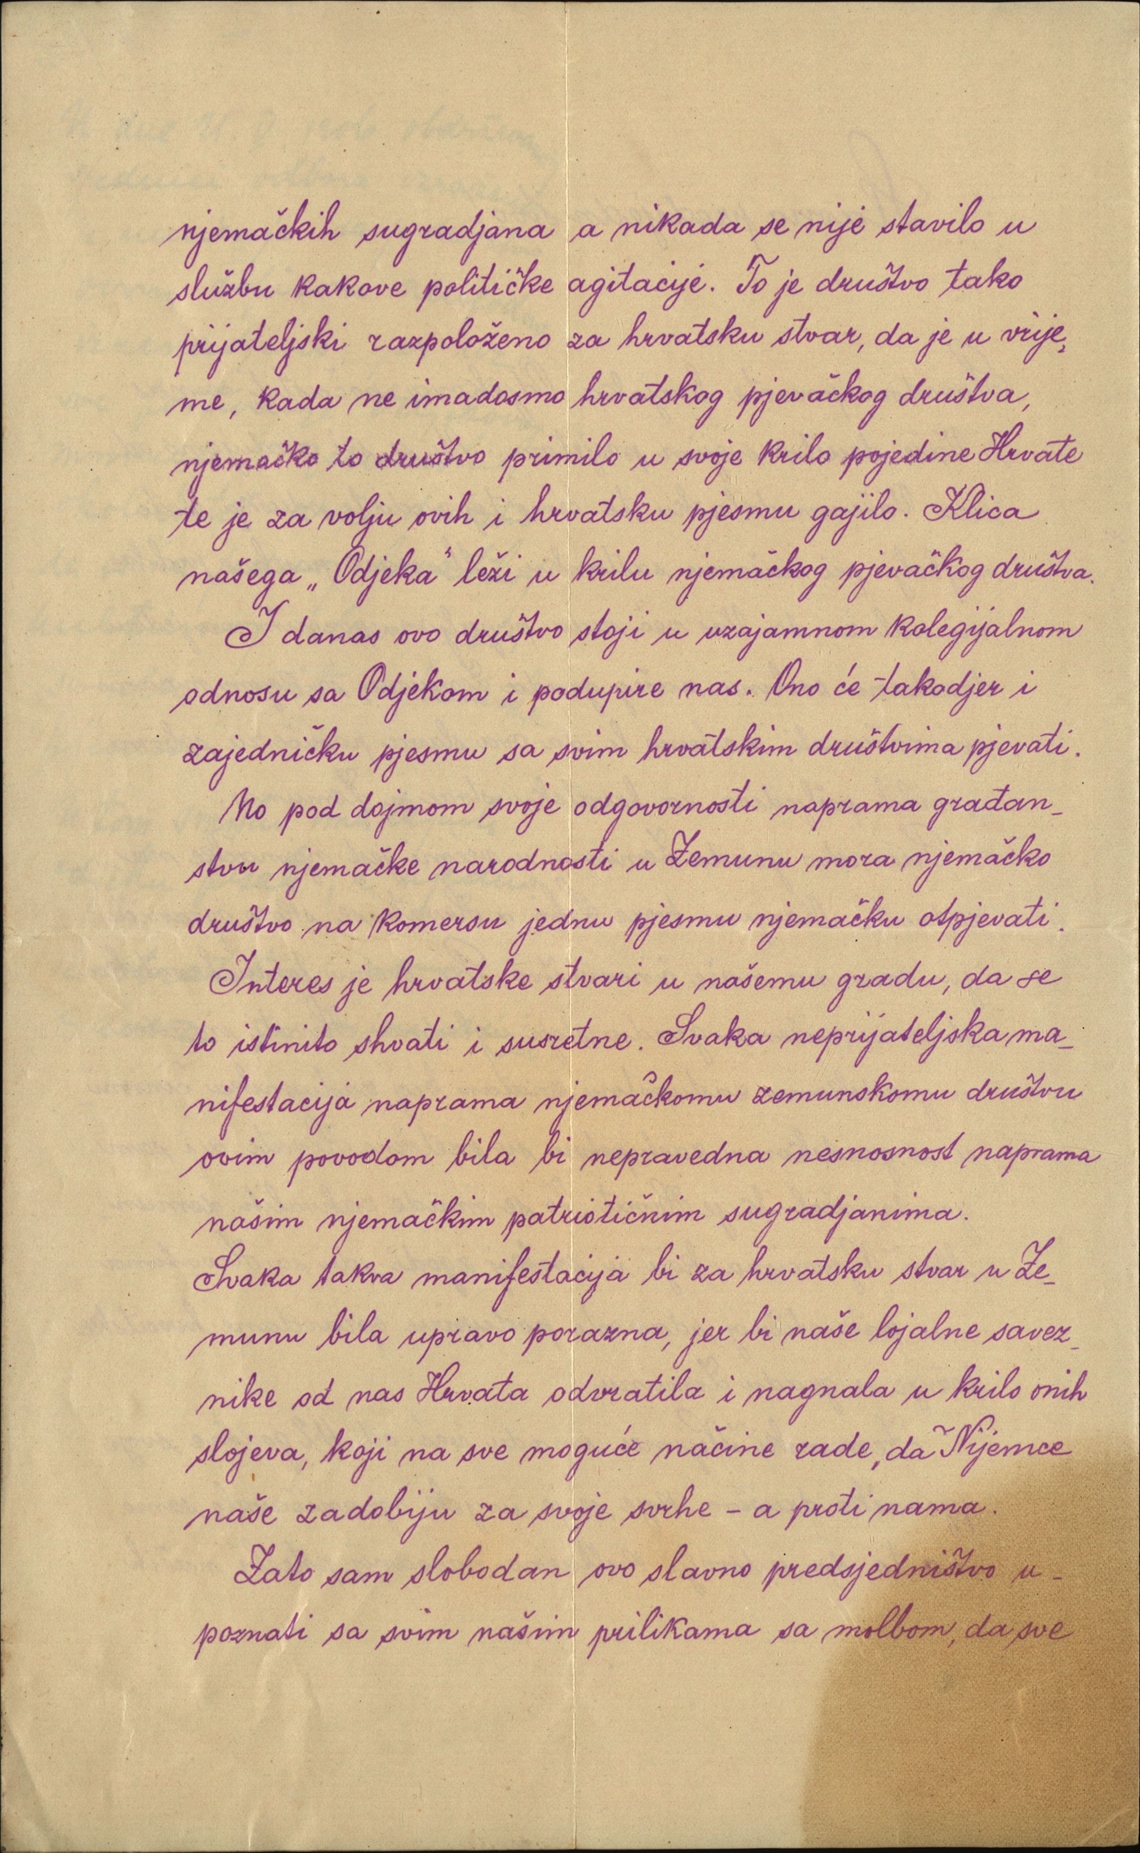 njemačkih sugradjana a nikada se nije stavilo u
službu kakove političke agitacije. To je društvo tako
prijateljski razpoloženo za hrvatsku stvar, da je u vrije-
me, kada ne imadosmo hrvatskog pjevačkog društva,
njemačko to društvo primilo u svoje krilo pojedine Hrvate
te je za volju ovih i hrvatsku pjesmu gajilo. Klica
našega „Odjeka" leži u krilu njemačkog pjevačkog društva.
I danas ovo društvo stoji u uzajamnom kolegijalnom
odnosu sa Odjekom i podupire nas. Ono će takodjer i
zajedničku pjesmu sa svim hrvatskim društvima pjevati.
No pod dojmom svoje odgovornosti naprama građan-
stvu njemačke narodnosti u Zemunu mora njemačko
društvo na komersu jednu pjesmu njemačku otpjevati.
Interes je hrvatske stvari u našemu gradu, da se
to istinito shvati i susretne. Svaka neprijateljska ma-
nifestacija naprama njemačkomu zemunskomu društvu
ovim povodom bila bi nepravedna nesnosnost naprama
našim njemačkim patriotičnim sugradjanima.
Svaka takva manifestacija bi za hrvatsku stvar u Ze-
munu bila upravo porazna, jer bi naše lojalne savez-
nike od nas Hrvata odvratila i nagnala u krilo onih
slojeva, koji na sve moguće načine rade, da Nijemce
naše zadobiju za svoje svrhe – a proti nama.
Zato sam slobodan ovo slavno predsjedništvo u-
poznati sa svim našim prilikama sa molbom, da sve